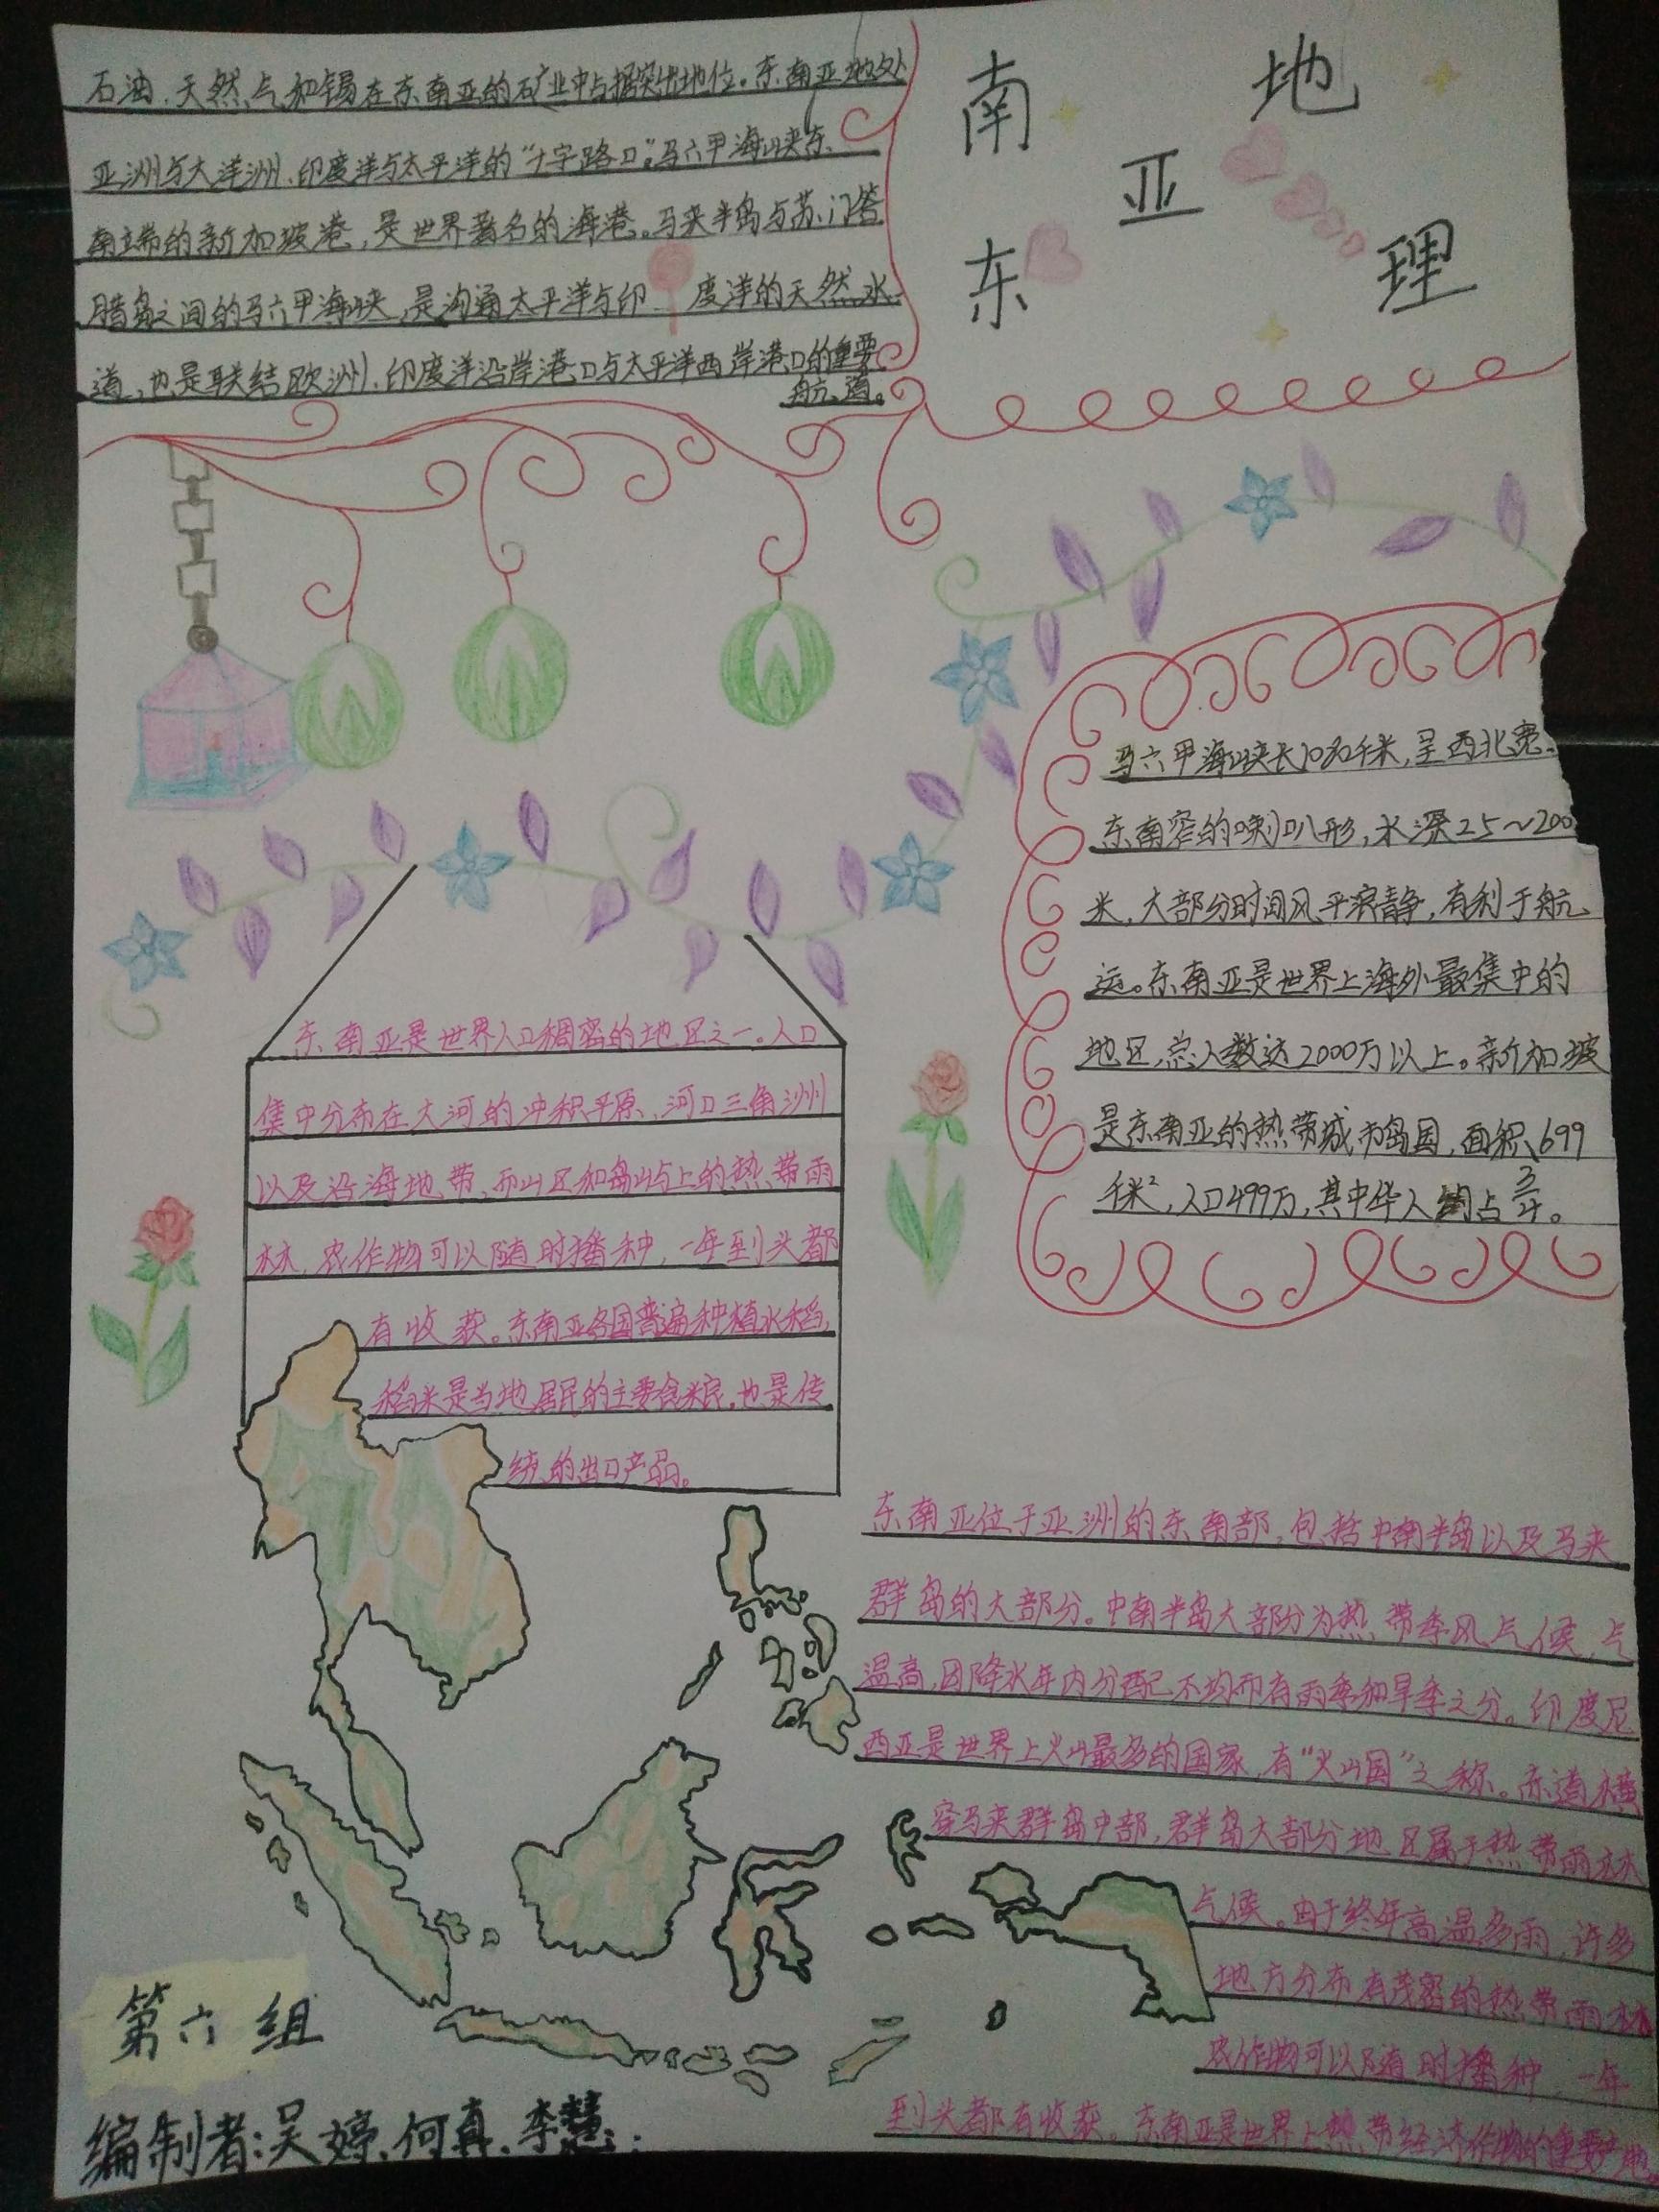 石油、天然气和锡在东南亚的矿业中占据突出地位。东南亚地处
亚洲与大洋洲、印度洋与太平洋的“十字路口”。马六甲海峡东
南端的新加坡港，是世界著名的海港。马来半岛与苏门答
腊岛之间的马六甲海峡，是沟通太平洋与印度洋的天然水
道，也是联结欧洲、印度洋沿岸港口与太平洋西岸港口的重要
航道。
东南亚地理
马六甲海峡长1080千米，呈西北宽、
东南窄的喇叭形，水深25~200
米，大部分时间风平浪静，有利于航
运。东南亚是世界上海外最集中的
地区，总人数达2000万以上。新加坡
是东南亚的热带城市岛国，面积699
千米²，人口499万，其中华人约占3/4。
东南亚是世界人口稠密的地区之一。人口
集中分布在大河的冲积平原、河口三角洲
以及沿海地带，而山区和岛屿上的热带雨
林，农作物可以随时播种，一年到头都
有收获。东南亚各国普遍种植水稻，
稻米是当地居民的主要食粮，也是传
统的出口产品。
东南亚位于亚洲的东南部，包括中南半岛以及马来
群岛的大部分。中南半岛大部分为热带季风气候，气
温高，因降水年内分配不均而有雨季和旱季之分。印度尼
西亚是世界上火山最多的国家，有“火山国”之称。赤道横
穿马来群岛中部，群岛大部分地区属于热带雨林
气候。由于终年高温多雨，许多
地方分布有茂密的热带雨林
农作物可以随时播种，一年
到头都有收获。东南亚是世界上热带经济作物的重要产地。
第六组
编制者：吴婷、何真、李慧